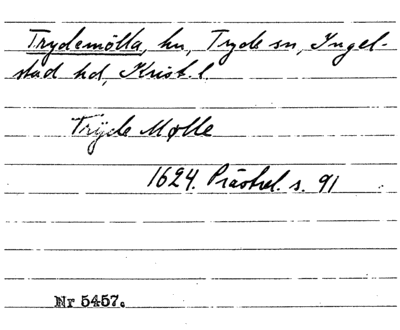 Trydemölla, hn, Tryde sn, Ingel-
stad hd, Krist. l.
Trÿde Mølle
1624. Prästrel. s. 91
Nr 5457.